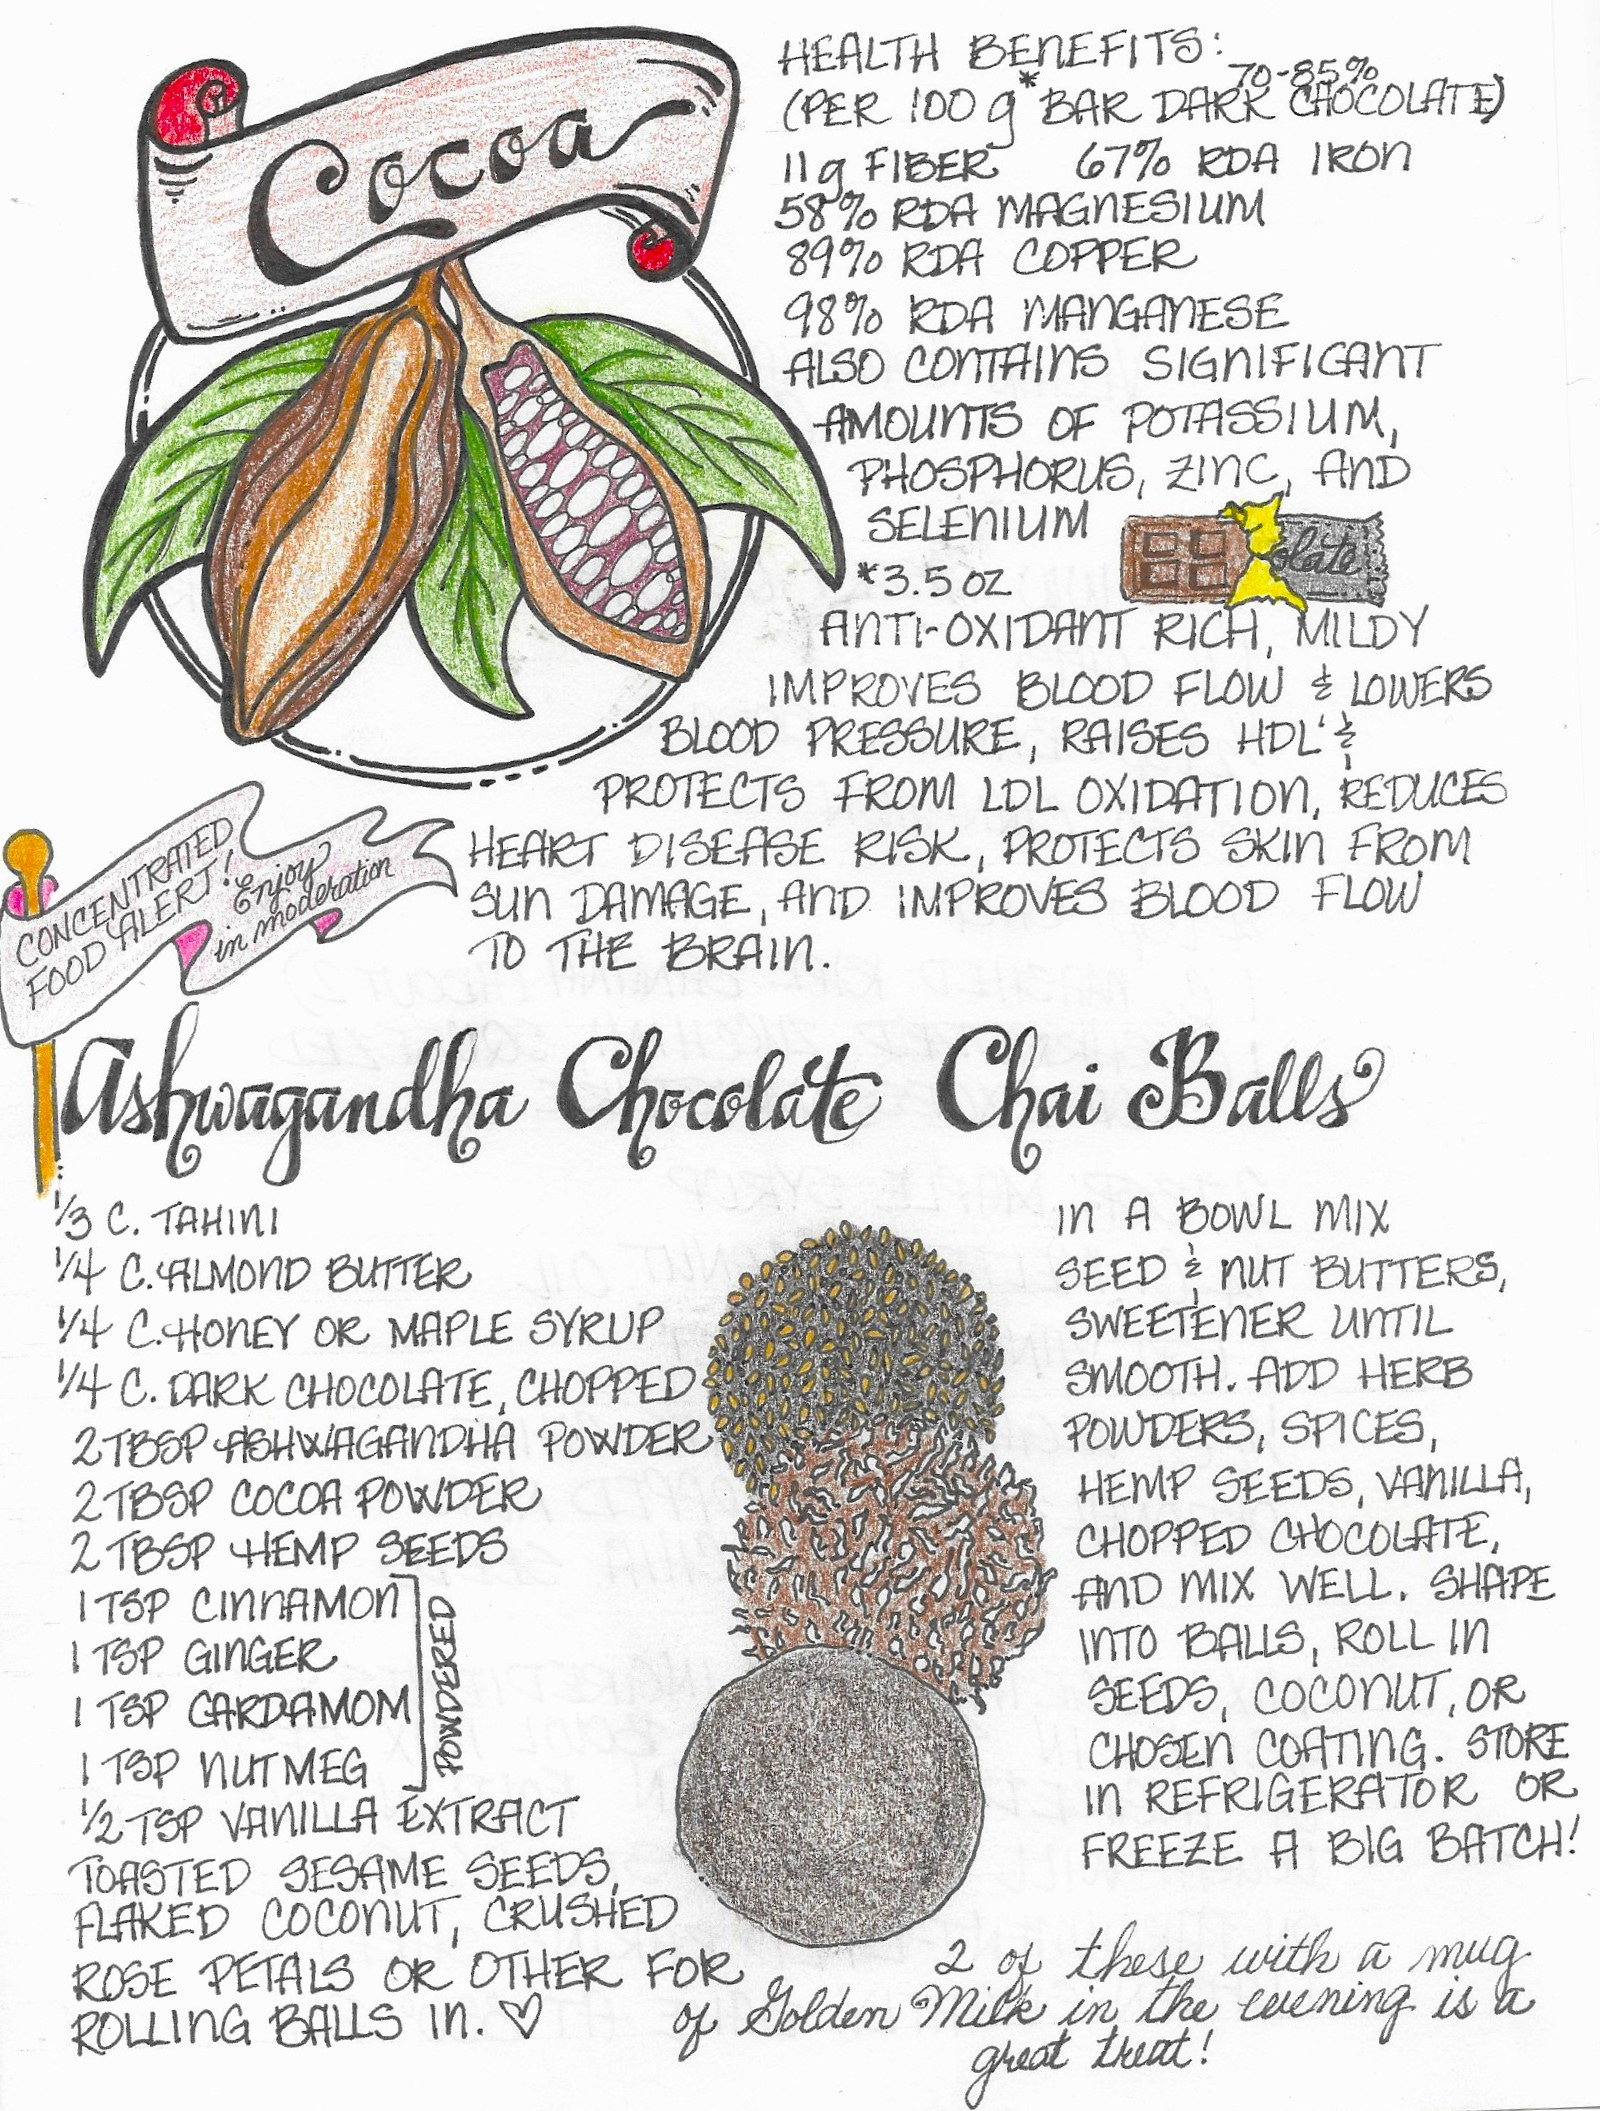 Cocoa
HEALTH BENEFITS:
70-85%
(PER 100 g* BAR DARK CHOCOLATE)
11g FIBER 67% RDA IRON
58% RDA MAGNESIUM
89% RDA COPPER
98% RDA MANGANESE
ALSO CONTAINS SIGNIFICANT
AMOUNTS OF POTASSIUM,
PHOSPHORUS, ZINC, AND
SELENIUM
olate
*3.5 OZ
ANTI-OXIDANT RICH, MILDY
IMPROVES BLOOD FLOW & LOWERS
BLOOD PRESSURE, RAISES HDL &
PROTECTS FROM LDL OXIDATION, REDUCES
HEART DISEASE RISK, PROTECTS SKIN FROM
SUN DAMAGE, AND IMPROVES BLOOD FLOW
TO THE BRAIN.
CONCENTRATED
FOOD ALERT!
Enjoy
in moderation
Ashwagandha Chocolate Chai Balls
1/3 C. TAHINI
1/4 C. ALMOND BUTTER
1/4 C. HONEY OR MAPLE SYRUP
1/4 C. DARK CHOCOLATE, CHOPPED
2 TBSP ASHWAGANDHA POWDER
2 TBSP COCOA POWDER
2 TBSP HEMP SEEDS
1 TSP CINNAMON
1 TSP GINGER
1 TSP CARDAMOM
1 TSP NUTMEG
POWDERED
1/2 TSP VANILLA EXTRACT
TOASTED SESAME SEEDS,
FLAKED COCONUT, CRUSHED
ROSE PETALS OR OTHER FOR
ROLLING BALLS IN. ♡
IN A BOWL MIX
SEED & NUT BUTTERS,
SWEETENER UNTIL
SMOOTH. ADD HERB
POWDERS, SPICES,
HEMP SEEDS, VANILLA,
CHOPPED CHOCOLATE,
AND MIX WELL. SHAPE
INTO BALLS, ROLL IN
SEEDS, COCONUT, OR
CHOSEN COATING. STORE
IN REFRIGERATOR OR
FREEZE A BIG BATCH!
2 of these with a mug
of Golden Milk in the evening is a
great treat!